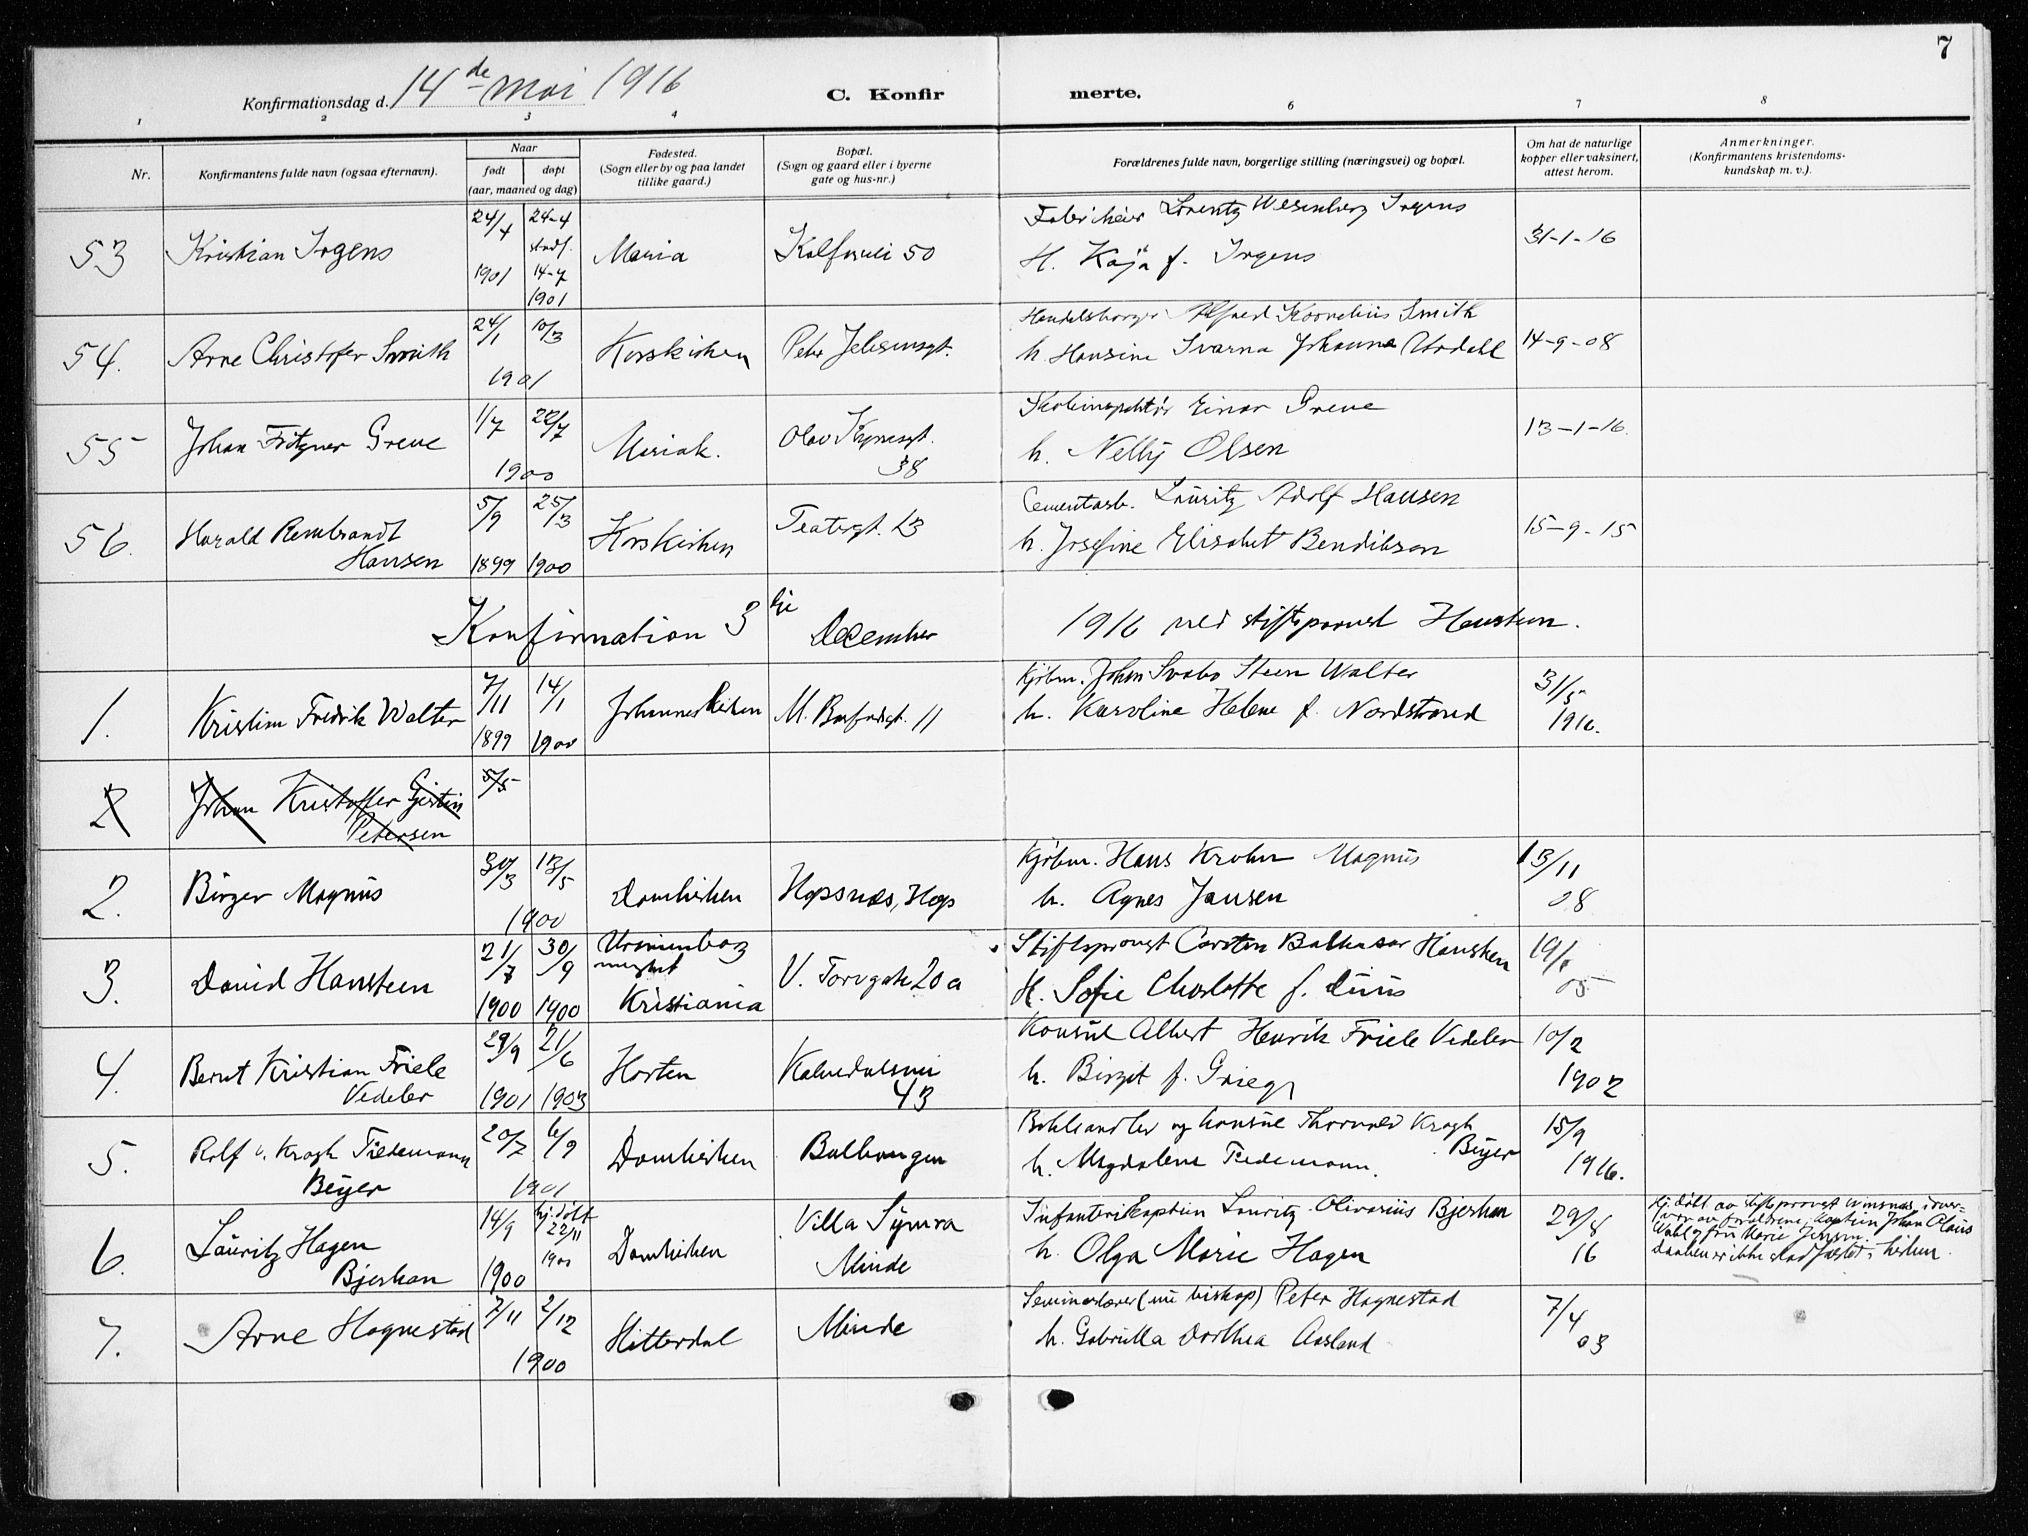 7
Konfirmationsdag d. 14de mai 1916
C. Konfir merte.
1 2 3 4 6 7 8
Nr.
Konfirmantens fulde navn (ogsaa efternavn).
Naar
født døpt
(aar, maaned og dag)
Fødested.
(Sogn eller by og paa landet
tillike gaard.)
Bopæl.
(Sogn og gaard eller i byerne
gate og hus-nr.)
Forældrenes fulde navn, borgerlige stilling (næringsvei) og bopæl.
Om hat de naturlige
kopper eller vaksinert,
attest herom.
Anmerkninger.
(Konfirmantens kristendoms-
kundskap m. v.).
53 Kristian Irgens 24/4 1901 24-4 stadf. 14-7 1901 Maria Kalfarvei 50
Lorentz Wesenberg Irgens
H. Kaja f. Irgens
31-1-16
54. Arne Christofer Smith 24/1 10/3 1901 Korskirken Peter Jebsensgt.
Handelsborger Alfred Kornelius Smith
h. Hansine Svarna Johanna Urdahl
14-9-08
55 Johan Fritzner Greve 1/7 22/7 1900 Mariak. Olav Kyrresgt. 38
Skoleinspektør Einar Greve
h. Nelly Olsen
13-1-16.
56. Harald Rembrandt
Hansen
5/9 1899 25/3 1900 Korskirken Teatergt. 13
Cementarb. Lauritz Adolf Hansen
h. Josefine Elisabet Bendiksen
15-9-15
Konfirmation 3die December 1916 ved stiftsprovst Hansteen.
1. Kristian Fredrik Walter 7/11 1899 14/1 1900 Johanneskirken
Kjøbm. Johan Svabo Steen Walter
h. Karoline Helene f. Nordstrand
31/5
1916.
2 Johan Kristoffer Gjertin
Petersen
5/5
2. Birger Magnus 30/3 13/5 1900 Domkirken Hopsnes, Hop
Kjøbm. Hans Krohn Magnus
h. Agnes Jansen
13/11
08
3. David Hansteen 21/7 1900 30/9 1900 Uranienborg
menighet
Kristiania
V. Torvgate 20 a
Stiftsprovst Carsten Balthazar Hansteen
H. Sofie Charlotte f. Duus
05
4. Bernt Kristian Friele
Vedeler
29/9 1901 21/6 1903 Horten Kalvedalsvei
43
Konsul Albert Henrik Friele Vedeler
h. Birgit f. Grieg
10/2
1902
5. Rolf v. Kragh Tiedemann
Beyer
20/7 6/9 1901 Domkirken
Bokhandler og konsul Thorvald Kragh
Beyer
h. Magdalene Tiedemann.
15/9
1916.
6. Lauritz Hagen
Bjerkan
14/9 1900 hj.døbt 22/11 1900 Domkirken Villa Symra
Minde
Infanterikaptein Lauritz Olivarius Bjerkan
h. Olga Marie Hagen
29/8
16
Hj. døbt av stiftsprovst i over-
vær av forældrene, kaptein Johan Claus
og fru Marie Jensen.
Daaben er ikke stadfæstet i kirken.
7. Arne Hognestad 7/11 2/12 1900 Hitterdal Minde
Seminarlærer (nu biskop) Peter Hognestad
h. Gabriella Dorthea Aasland
7/4
03